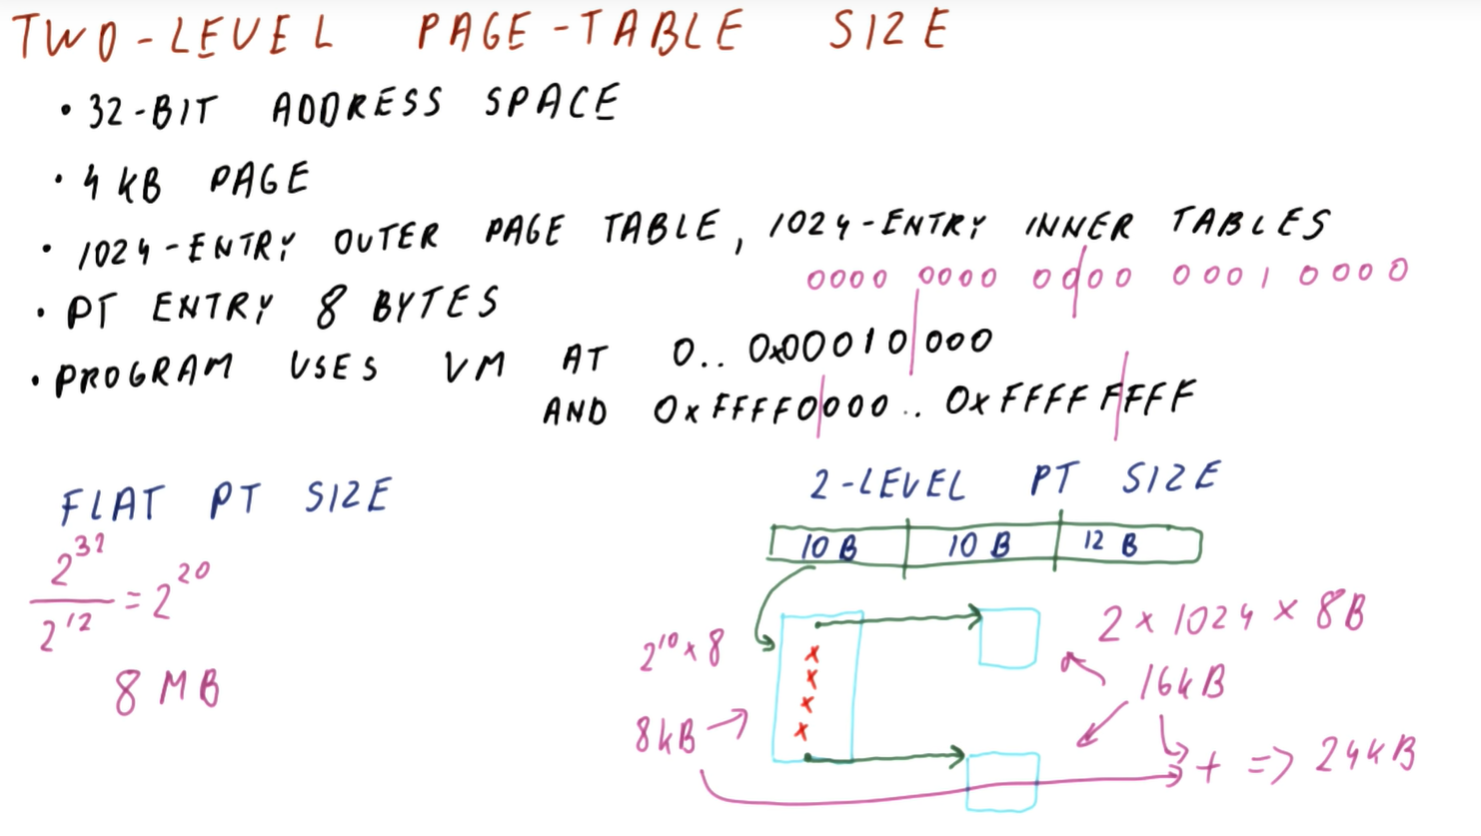 TWO-LEVEL PAGE-TABLE SIZE
• 32-BIT ADDRESS SPACE
• 4 KB PAGE
• 1024-ENTRY OUTER PAGE TABLE, 1024-ENTRY INNER TABLES
0000 0000 0000 0001 0000
• PT ENTRY 8 BYTES
• PROGRAM USES VM AT 0.. 0x00010000
AND 0xFFFF0000 .. 0xFFFFFFFF
FLAT PT SIZE
2^32 / 2^12 = 2^20
8 MB
2-LEVEL PT SIZE
10 B 10 B 12 B
2^10 x 8
8kB
x
x
x
x
2 x 1024 x 8B
16kB
+ => 24kB